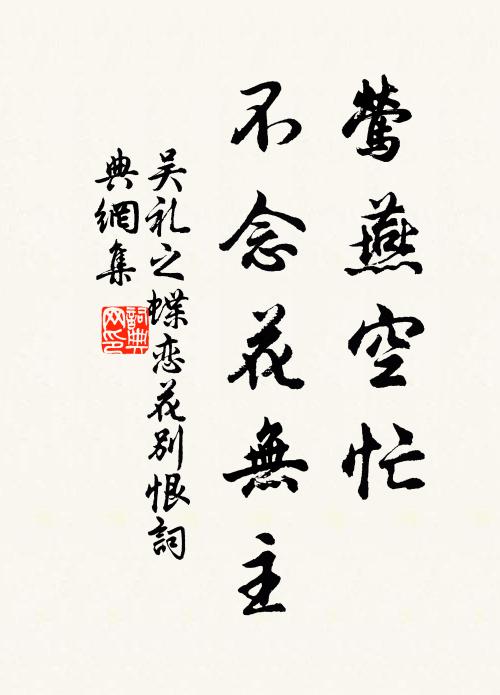 莺燕空忙
不念花無主
吴礼之蝶恋花别恨詞
典網集
詞典
网印